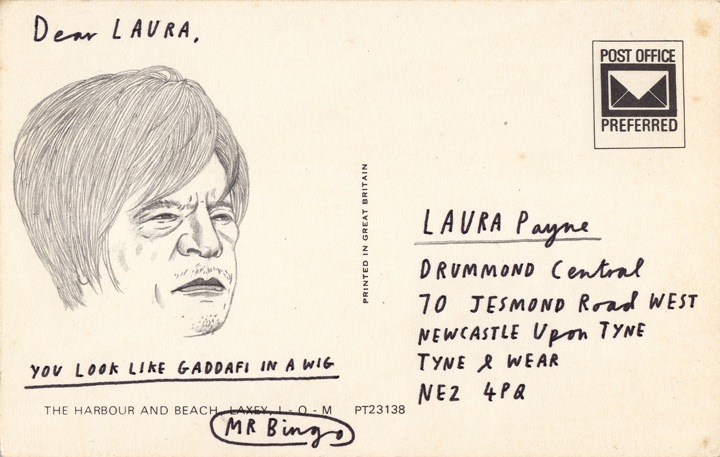 Dear LAURA,
POST OFFICE
PREFERRED
PRINTED IN GREAT BRITAIN
LAURA Payne
DRUMMOND Central
70 JESMOND Road WEST
NEWCASTLE Upon TYNE
TYNE & WEAR
NE2 4PQ
YOU LOOK LIKE GADDAFI IN A WIG
THE HARBOUR AND BEACH, LAXEY, I - O - M PT23138
MR Bingo